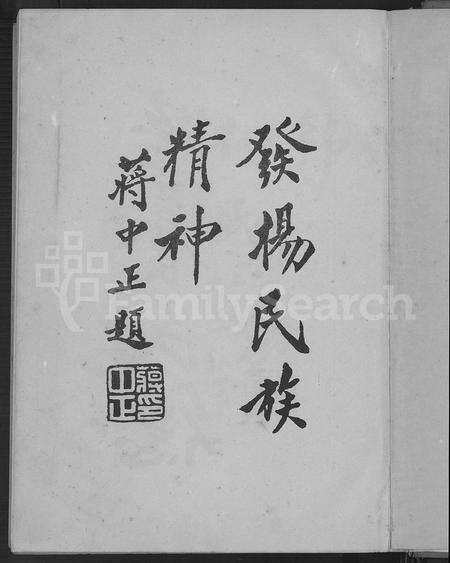 發揚民族
精神
蔣中正題
蔣印
中正
FamilySearch